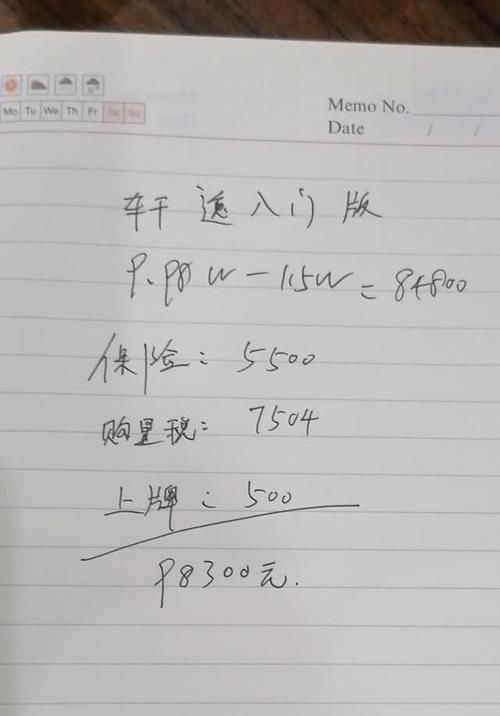 Mo Tu We Th Fr Sa Su
Memo No.
Date / /
轩逸入门版
9.98W-1.5W=84800
保险：5500
购置税：7504
上牌：500
98300元.